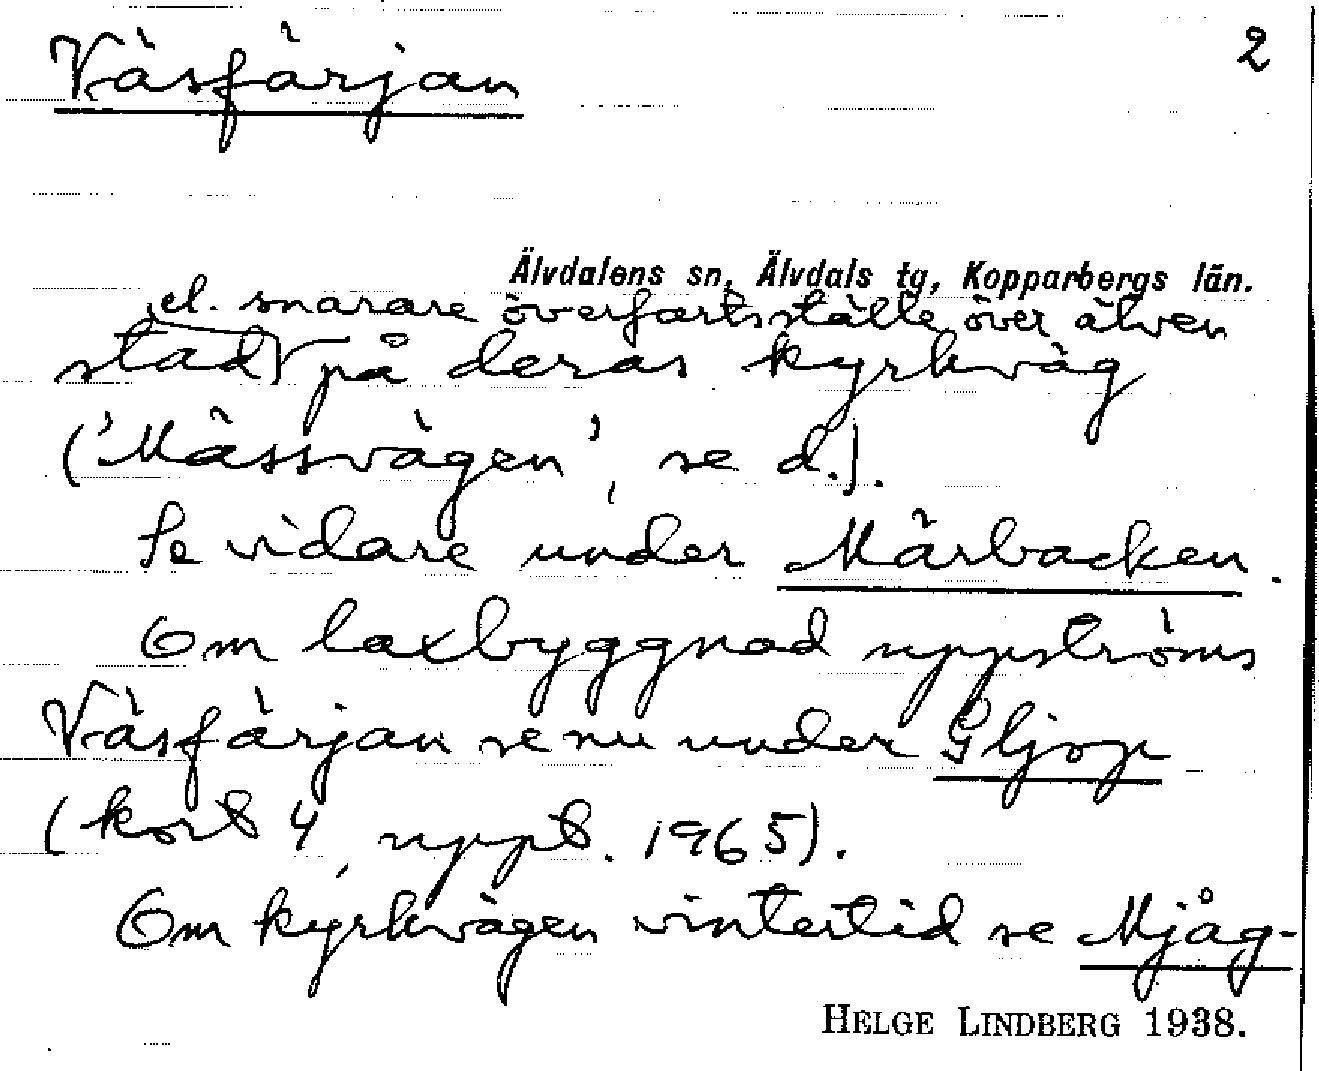 Väsfärjan 2
Älvdalens sn, Älvdals tg, Kopparbergs län.
el. snarare överfartsställe över älven
stad på deras kyrkväg
('Mässvägen', se d.).
Se vidare under Mårbacken.
Om laxbyggnad uppströms
Väsfärjan se nu under Gljop
(kort 4, uppt. 1965).
Om kyrkvägen vintertid se Mjåg-
HELGE LINDBERG 1938.